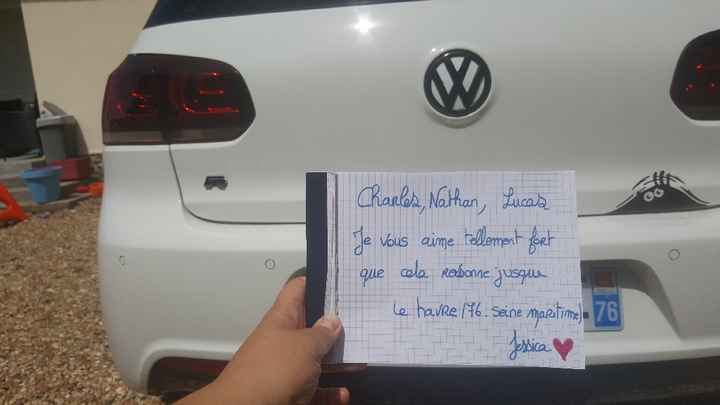 VW
Charles, Nathan, Lucas
Je vous aime tellement fort
que cela résonne jusque
Le havre (76. Seine maritime)
76
Jessica